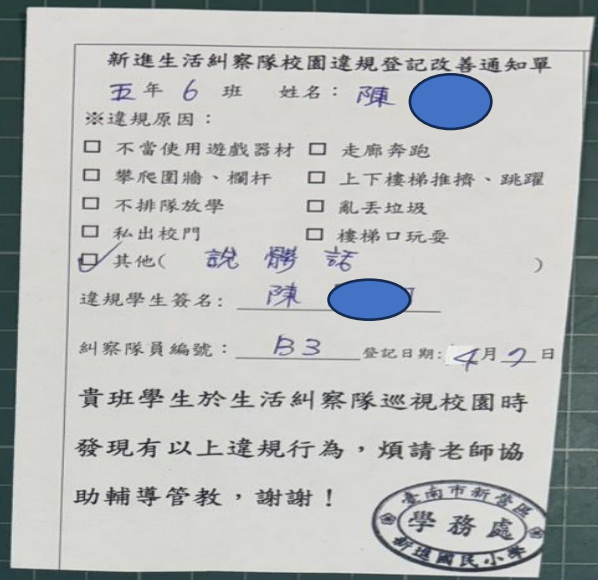 新進生活糾察隊校園違規登記改善通知單
五年 6 班 姓名：陳
※違規原因：
□ 不當使用遊戲器材 □ 走廊奔跑
□ 攀爬圍牆、欄杆 □ 上下樓梯推擠、跳躍
□ 不排隊放學 □ 亂丟垃圾
□ 私出校門 □ 樓梯口玩耍
☑ 其他( 說髒話 )
違規學生簽名: 陳
糾察隊員編號：B3 登記日期: 4月2日
貴班學生於生活糾察隊巡視校園時
發現有以上違規行為，煩請老師協
助輔導管教，謝謝！
臺南市新營區
學務處
新進國民小學